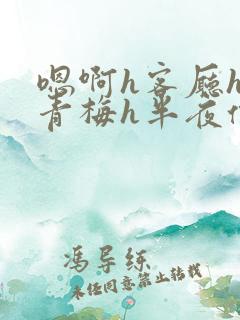 嗯啊h客厅h
青梅h半夜
冯导练
未经同意禁止转载